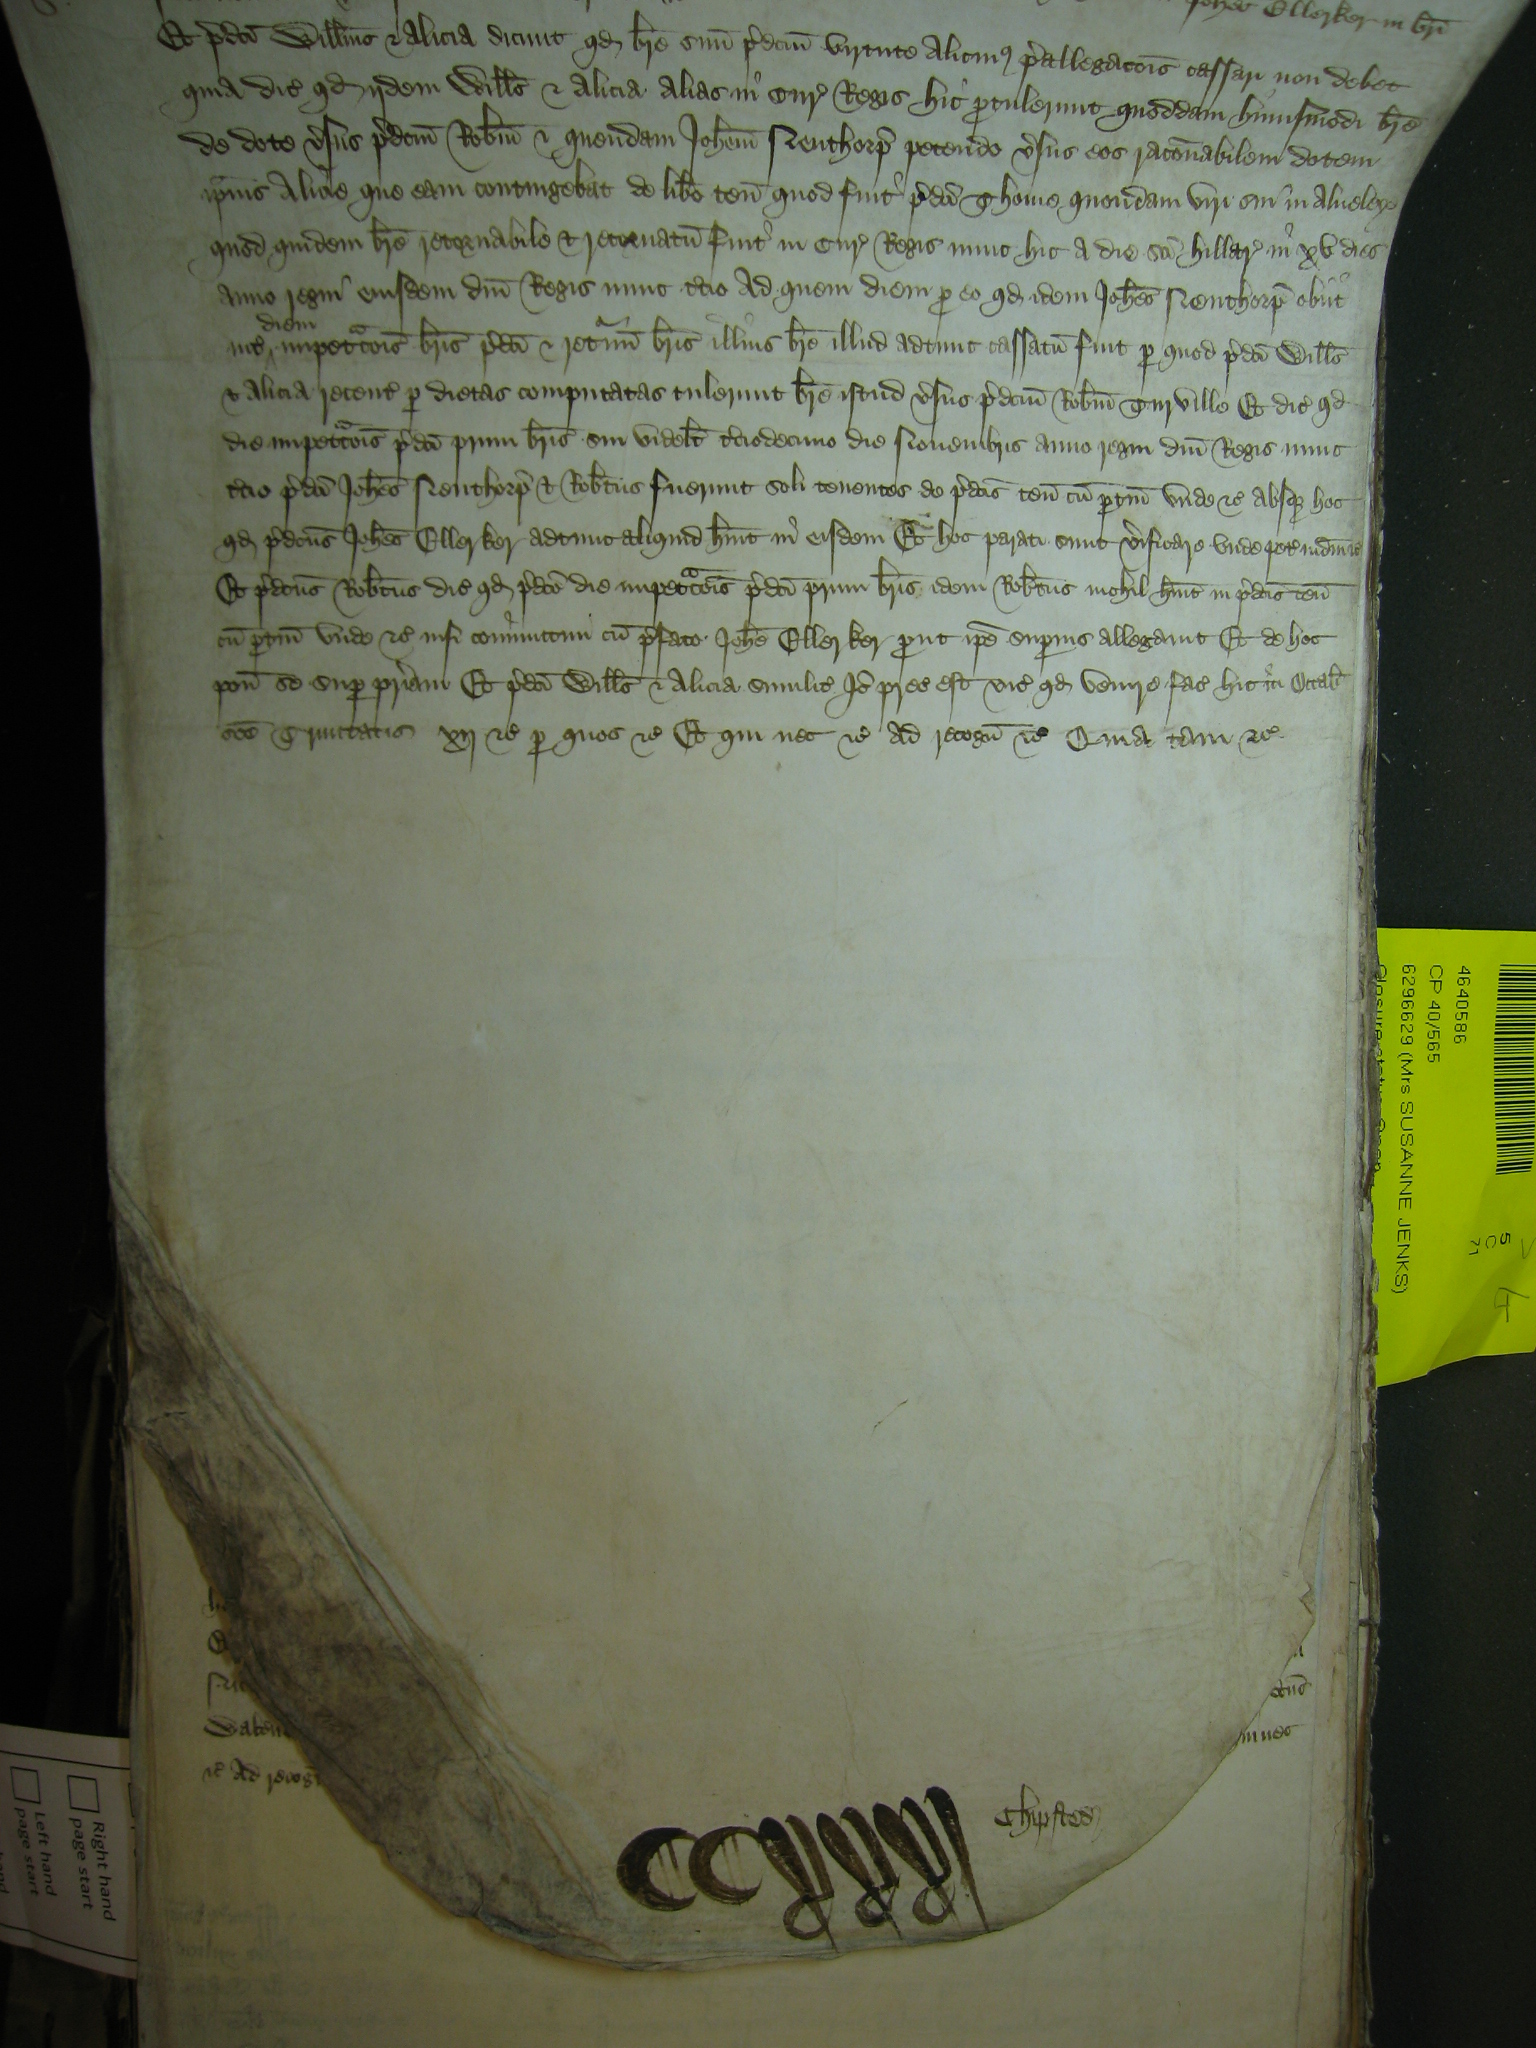 Johes Ellerker in bre
Et p̄dci Willms & Alicia dicunt qd bre suū p̄dcm virtute alicuiꝰ p̄allegacois cassari non debet
quia dic qd ijdem Wills & Alicia alias in Cur Regis hic ptulerunt quoddam huiusmodi bre
de dote vsus p̄dcm Robtm & quendam Johem Neuthorp petendo vsus eos raconabilem dotem
ipius Alicie que eam contingebat de libo ten quod fuit p̄dci Thome quondam viri sui in
quod quidem bre retornabile & retornatū fuit in Cur Regis nunc hic a die sci Hillar in xv dies
anno regni eiusdem dni Regis nunc tcio Ad quem diem p eo qd idem Johes Neuthorp obijt
diem
int impetracois bris p̄dci & retorn bris illius bre illud adtunc cassatū fuit p quod p̄dci Wills
& Alicia recent p dietas computatas tulerunt bre istud vsus p̄dcm Robtm Turville Et dic qd
die impetracois p̄dci primi bris sui videlt tciodecimo die Nouembris anno regni dni Regis nunc
tcio p̄dci Johes Neuthorp & Robtus fuerunt soli tenentes de p̄dcis ten cū ptin vnde &c absqȝ hoc
qd p̄dcus Johes Ellerker adtunc aliquid huit in eisdem Et hoc parati sunt vificare vnde pet iudm &c
Et p̄dcus Robtus dic qd p̄dco die impetracois p̄dci primi bris idem Robtus nichil huit in p̄dcis ten
cū ptin vnde &c nisi coniunctim cū p̄fato Johe Ellerker put ipe supius allegauit Et de hoc
pon se sup priam Et p̄dci Wills & Alicia similit Io prec est vic qd venire fac hic in Octab
sce Trinitatis xij &c p quos &c Et qui nec &c Ad recogn &c Quia tam &c
Walteru
&c Ad recogn
Chipsted
4640586
CP 40/565
6296629 (Mrs SUSANNE JENKS)
Closure status: Open
5
C
71
Right hand
page start
Left hand
page start